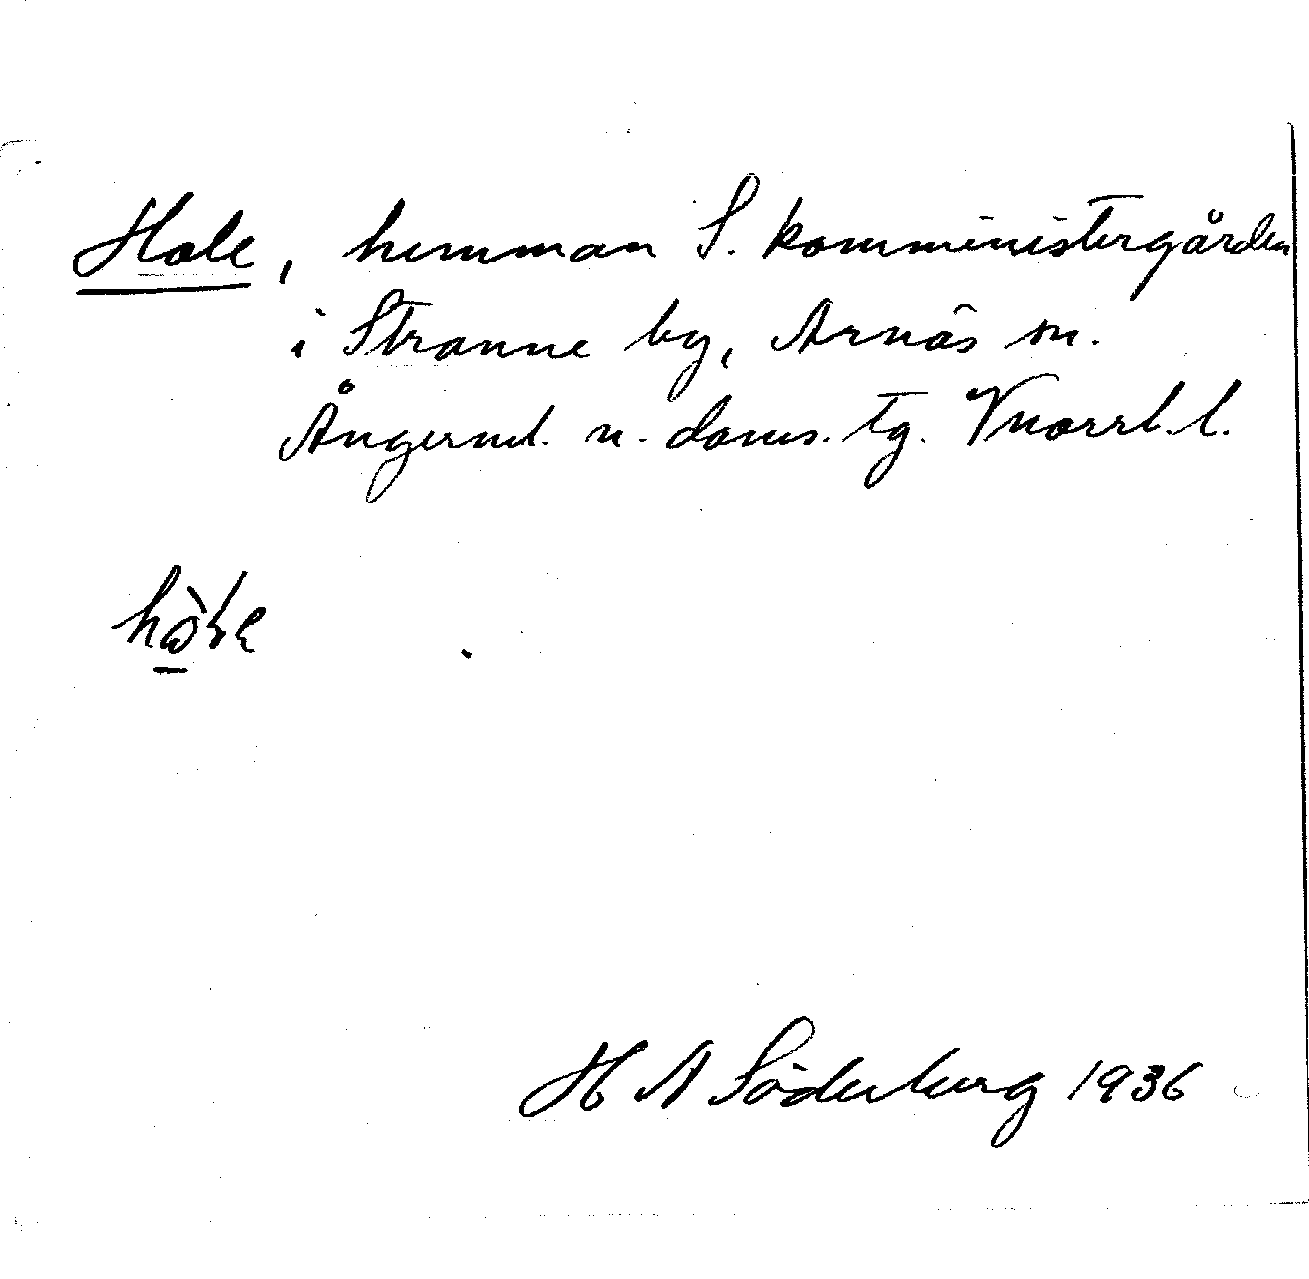 Hale, hemman S. komministergården
i Stranne by, Arnäs sn.
Ångerml. n. doms. tg. Vnorrl. l.
H A Söderberg 1936